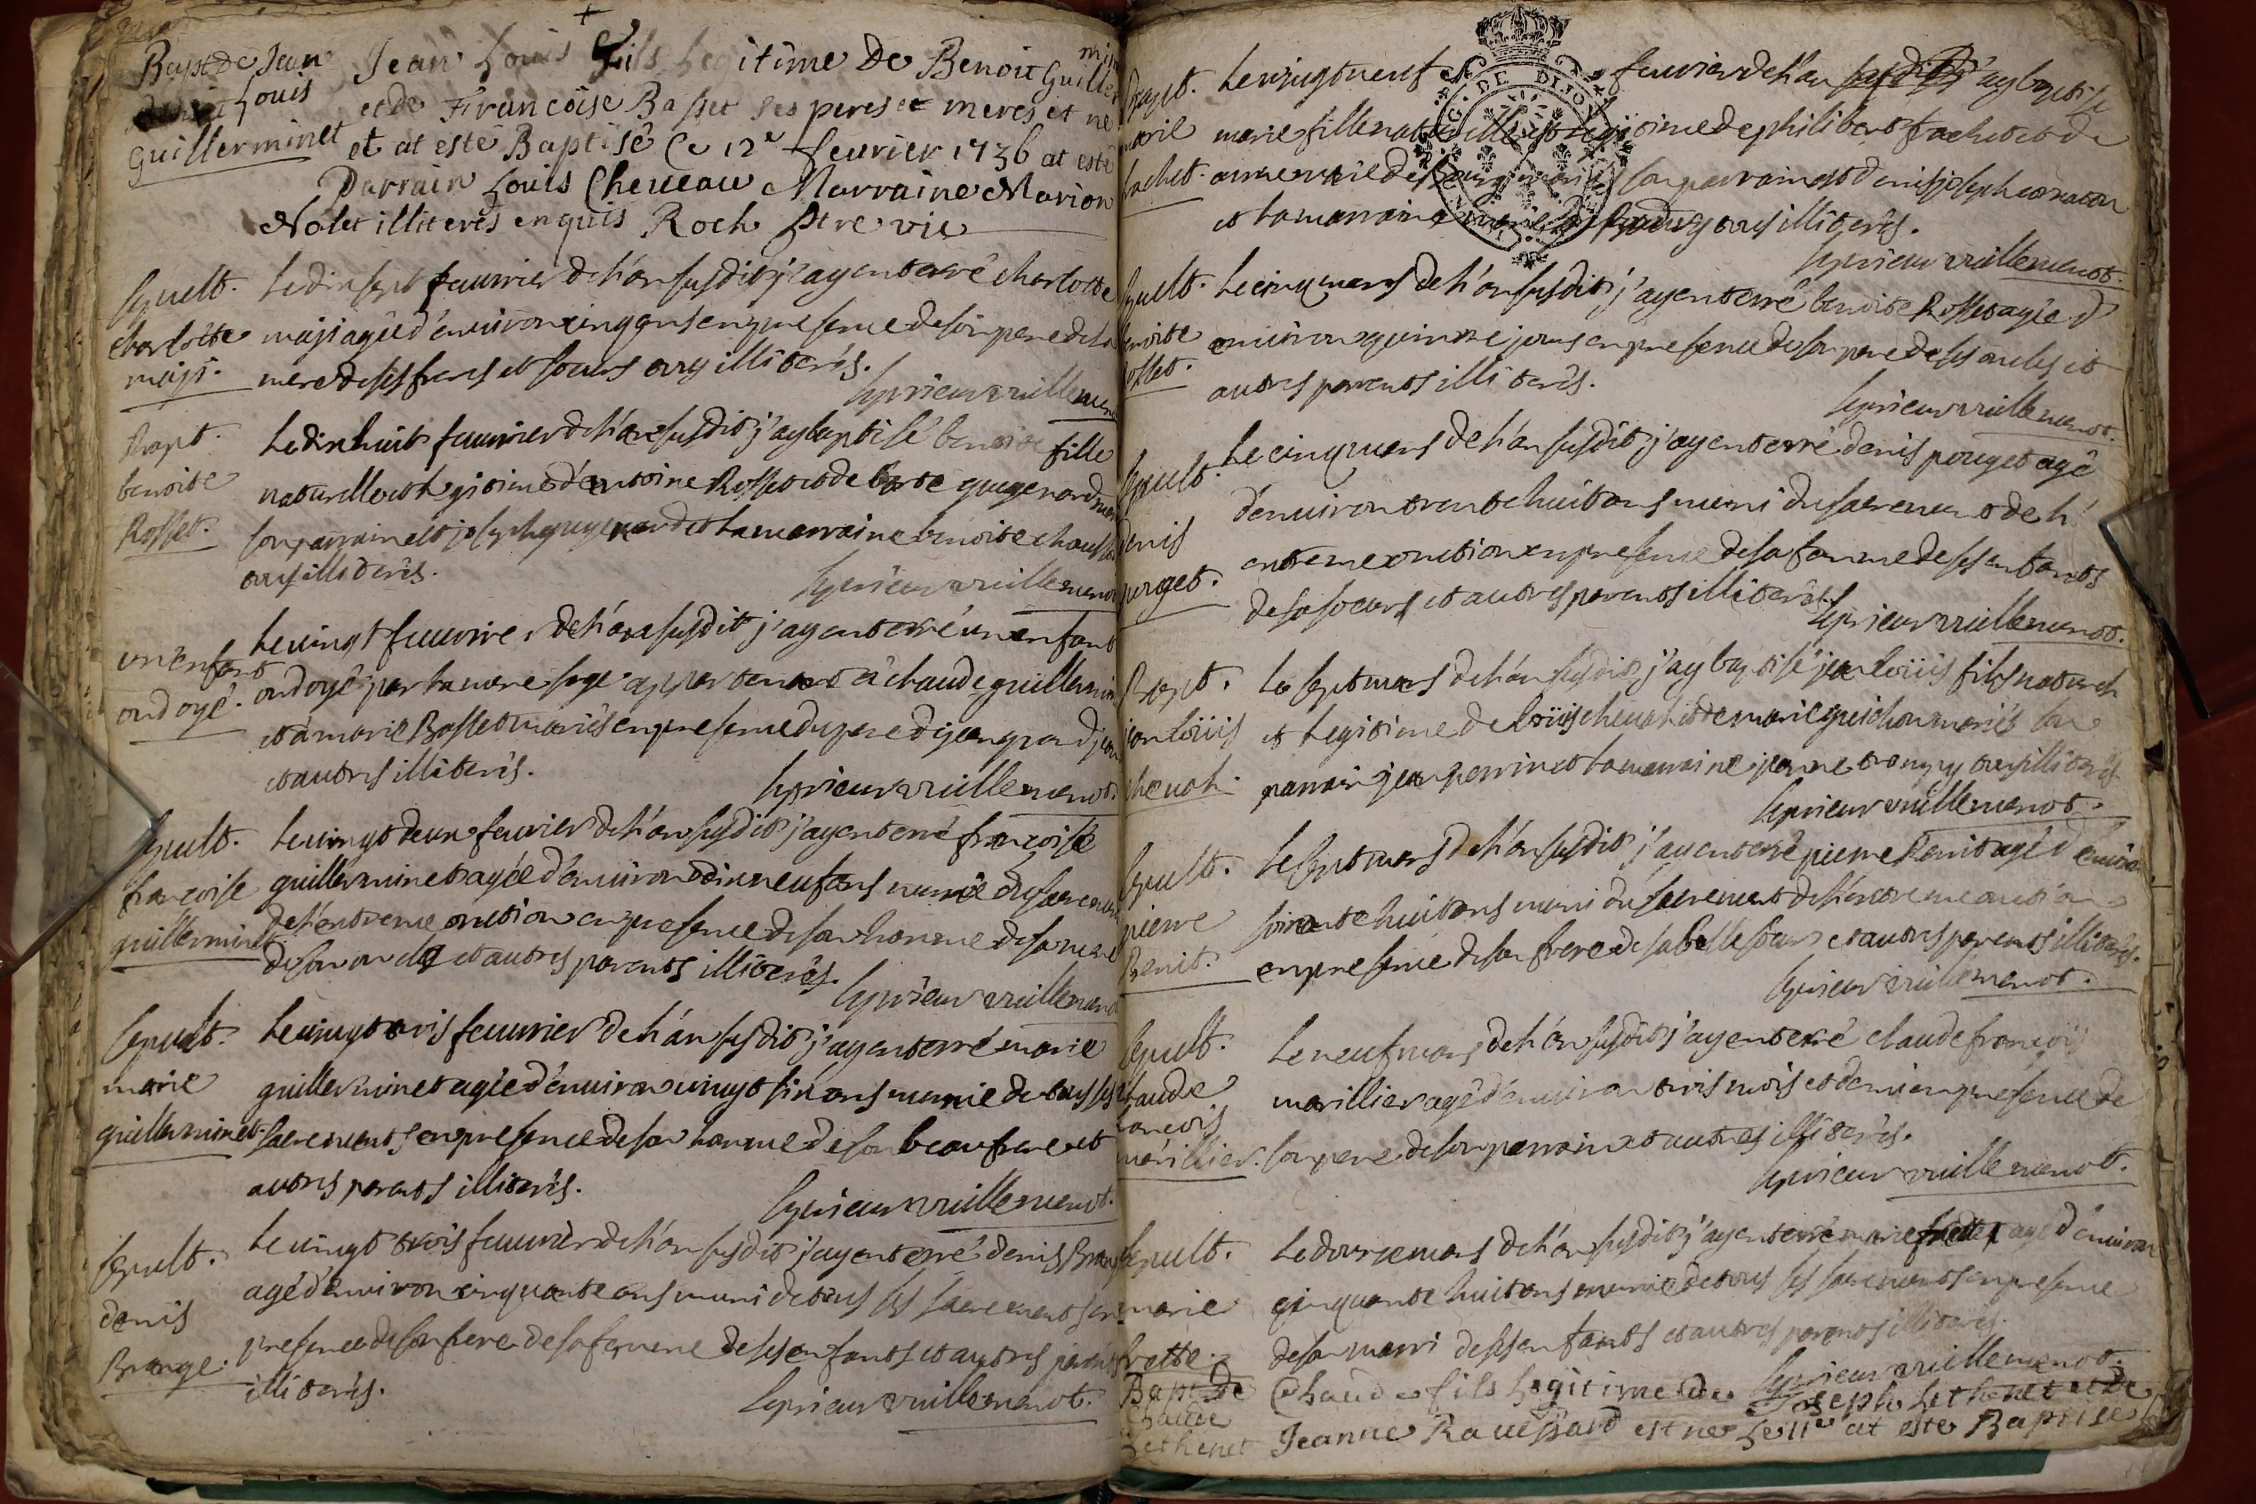 Bapt de Jean
Louis
Guillerminet
Jean Louis Fils Legitime De Benoit Guiller
min
et de Francoise Basset ses peres et meres et né
et at esté Baptisé Ce 12e feurier 1736 at esté
Parrain Louis Cheueau Marraine Marion
Nolet illiterés enquis Roch Ptre vic
Sepult.
charlotte
maji.
Le dix sept feuurier de l'an susdit j'ay enterré charlotte
maji agée d'enuiron cinq ans en presence de son pere de sa
mere de ses freres et soeurs ouy illiterés.
le prieur vuillemenot
Bapt.
benoite
Rosset.
Le dix huit feuurier de l'an susdit j'ay baptisé benoite fille
naturelle et legitime d'entoine Rosset et de guigenard
son parrain est joseph guigenard et la marraine benoite
ouy illiterés.
le prieur vuillemenot
un enfant
ondoyé.
Le vingt feuurier de l'an susdit j'ay enterré un enfant
ondoyé par la mere sage appartenant à claude guillemin
et à marie Basset mariés en presence du pere de jean grandjean
et autres illiterés.
le prieur vuillemenot.
Sepult.
francoise
guillerminet
Le vingt deux feurier de l'an susdit j'ay enterré francoise
guillerminet agée d'enuiron dix neuf ans munie du sacrement
de l'extreme onction en presence de son homme de sa mere
de son oncle et autres parents illiterés.
le prieur vuillemenot
Sepult.
marie
guillerminet
Le vingt trois feuurier de l'an susdit j'ay enterré marie
guillerminet agée d'enuiron vingt six ans munie de tous ses
sacrements en presence de son homme de son beau frere et
autres parents illiterés.
le prieur vuillemenot.
Sepult.
denis
Brange.
Le vingt trois feuurier de l'an susdit j'ay enterré denis Brange
agé d'enuiron cinquante ans muni de tous ses sacrements en
presence de son frere de sa femme de ses enfants et autres parents
illiterés.
le prieur vuillemenot.
Bapt.
marie
fachet.
G. DE DIJON
Le vingt neuf feuurier de l'an susdit j'ay baptisé
marie fille naturelle et legitime de philibert fachet et de
anne marie de mariés son parrain est denis joseph
et la marraine marie ouy illiterés.
le prieur vuillemenot.
Sepult.
benoite
rosset.
Le cinq mars de l'an susdit j'ay enterré benoite Rosset agée d'
enuiron quinze jours en presence de son pere de ses oncles et
autres parents illiterés.
le prieur vuillemenot.
Sepult.
denis
pouget.
Le cinq mars de l'an susdit j'ay enterré denis pouget agé
d'enuiron trente huit ans muni du sacrement de l'
extreme onction en presence de sa femme de ses enfants
de sa soeurs et autres parents illiterés.
le prieur vuillemenot.
Bapt.
jean loüis
cheuot.
Le sept mars de l'an susdit j'ay baptisé jean loüis fils naturel
et legitime de loüis cheuot et de marie guichon mariés son
parrain jean perrin et la marraine jeanne ouy illiterés
le prieur vuillemenot.
Sepult.
pierre
Benit.
Le sept mars de l'an susdit j'ay enterré pierre Benit agé d'enuiron
soixante huit ans muni du sacrement de l'extreme onction
en presence de son frere de sa belle soeur et autres parents illiterés.
le prieur vuillemenot.
Sepult.
claude
francois
marillier.
Le neuf mars de l'an susdit j'ay enterré claude francois
marillier agé d'enuiron trois mois et demi en presence de
son pere de son parrain et autres illiterés.
le prieur vuillemenot.
Sepult.
marie
frette.
Le douze mars de l'an susdit j'ay enterré marie frette agé d'enuiron
cinquante huit ans munie de tous ses sacrements en presence
de son mari de ses enfants et autres parents illiterés.
le prieur vuillemenot.
Bapt. De
Claude
Lethenet
Claude fils Legitime de Joseph Lethenet et de
Jeanne Rauessard est né Le 11e at esté Baptisé